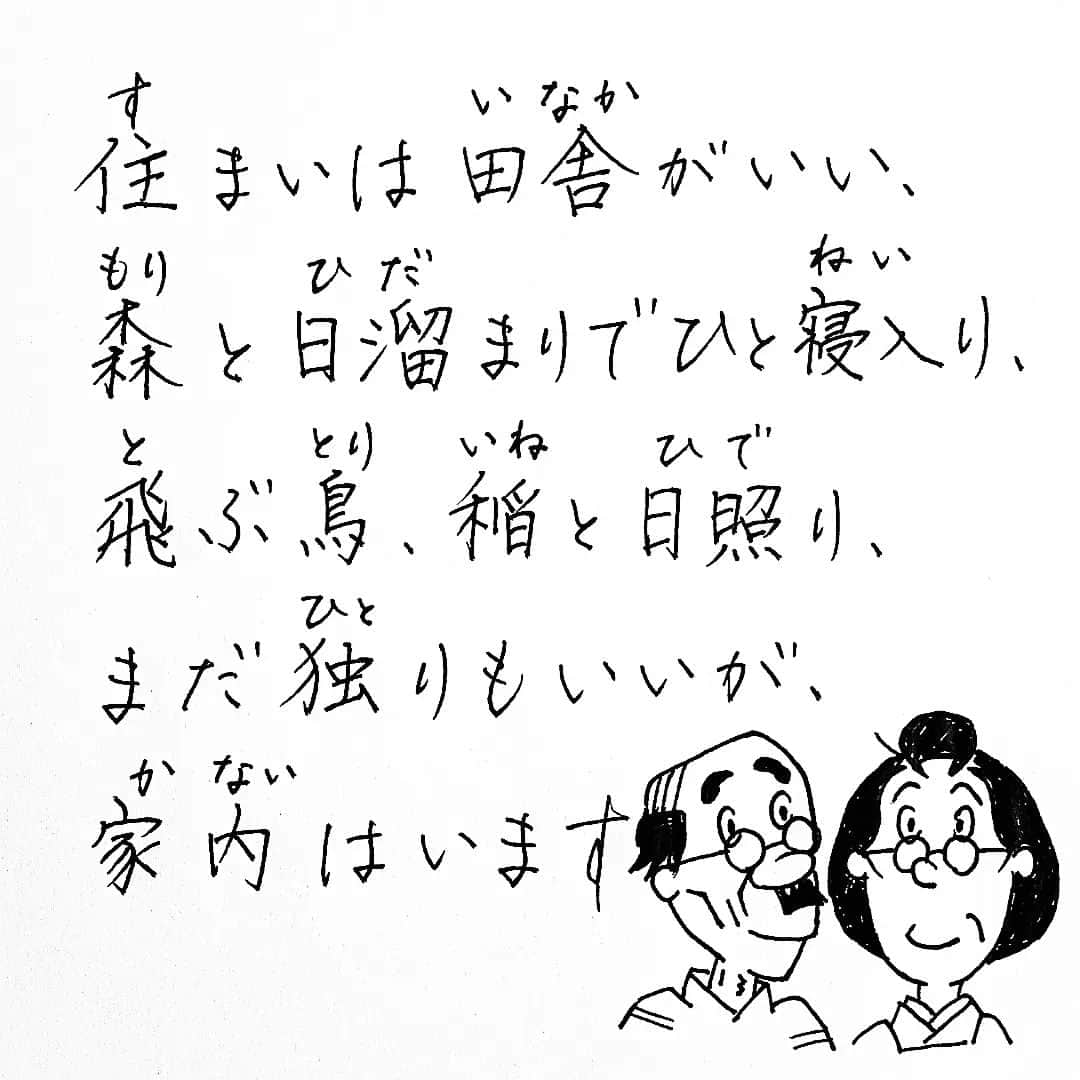 す いなか
住まいは田舎がいい、
もり ひだ ねい
森と日溜まりでひと寝入り、
と とり いね ひで
飛ぶ鳥、稲と日照り、
ひと
まだ独りもいいが、
か ない
家内はいます